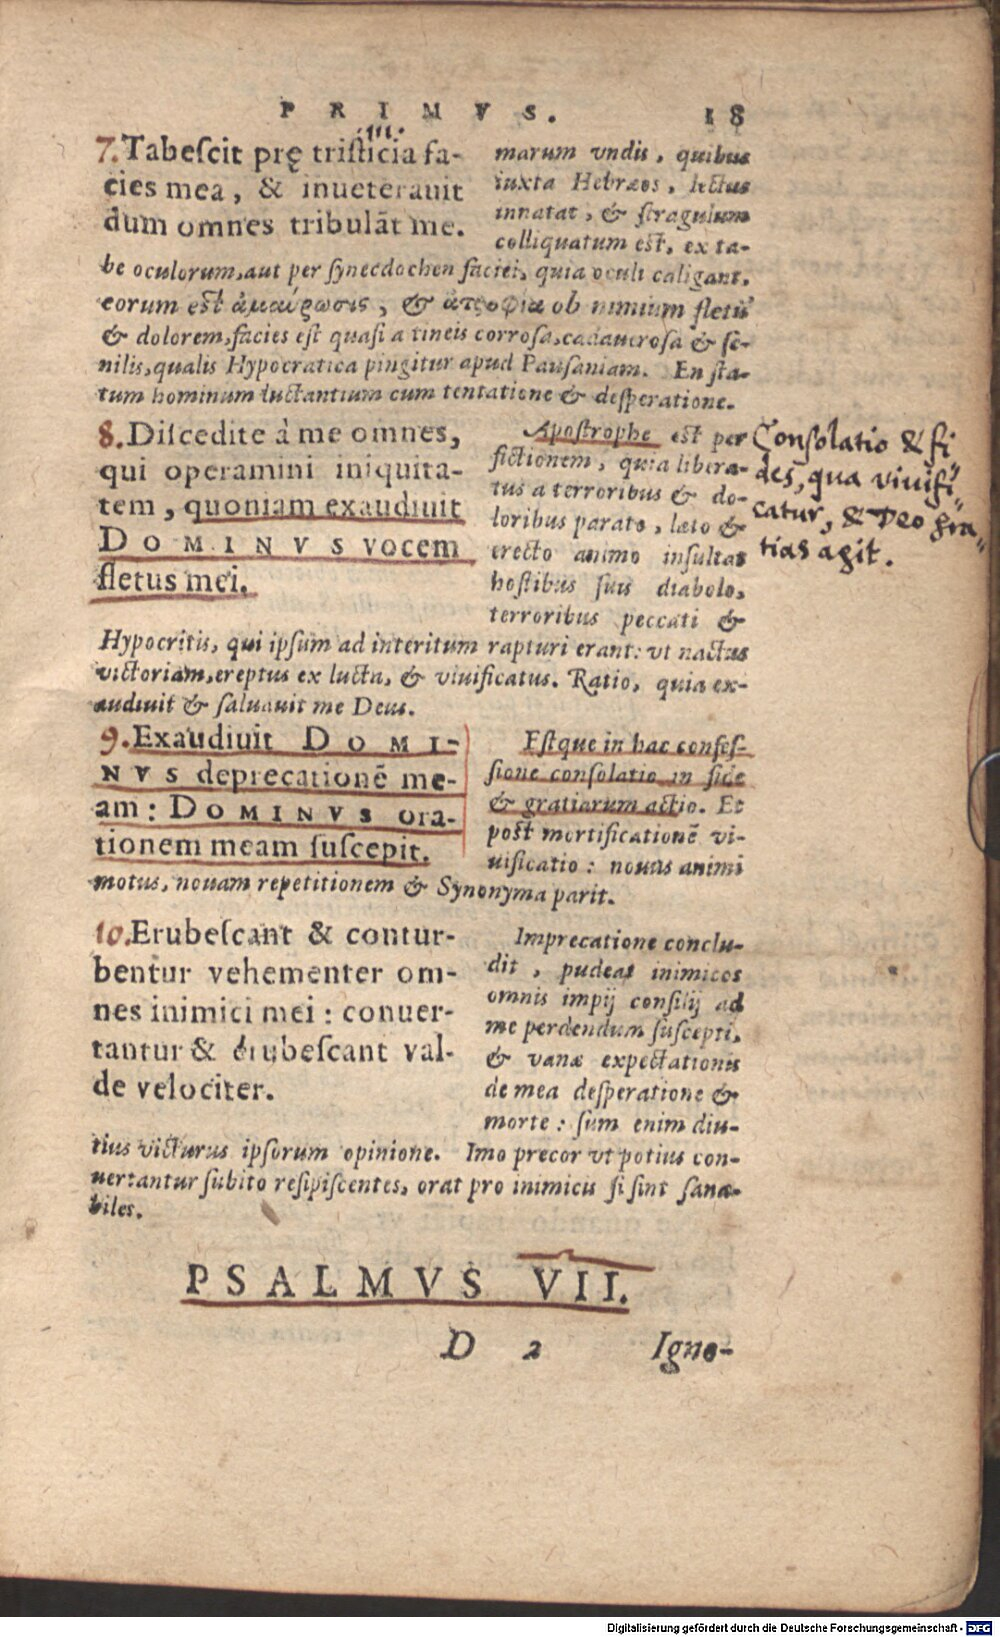 PRIMVS. 18
7. Tabeſcit prę triſticia fa-
cies mea, & inueterauit
dum omnes tribulāt me.
marum vndis, quibus
iuxta Hebræos, lectus
innatat, & ſtragulum
colliquatum eſt, ex ta-
be oculorum, aut per ſynecdochen faciei, quia oculi caligant.
eorum eſt ἀμαύρωσις, & ἀτροφία ob nimium fletū
& dolorem, facies eſt quaſi a tineis corroſa, cadaueroſa & ſe-
nilis, qualis Hypocratica pingitur apud Pauſaniam. En ſta-
tum hominum luctantium cum tentatione & deſperatione.
8. Diſcedite à me omnes,
qui operamini iniquita-
tem, quoniam exaudiuit
DOMINVS vocem
fletus mei.
Apoſtrophe eſt per
fictionem, quia libera-
tus a terroribus & do-
loribus parato, læto &
erecto animo inſultat
hoſtibus ſuis diabolo,
terroribus peccati &
Conſolatio & fi-
des, qua viuifi-
catur, & Deo gra-
tias agit.
Hypocritis, qui ipſum ad interitum rapturi erant: vt nactus
victoriam, ereptus ex lucta, & viuificatus. Ratio, quia ex-
audiuit & ſaluauit me Deus.
9. Exaudiuit DOMI-
NVS deprecationē me-
am: DOMINVS ora-
tionem meam ſuſcepit.
Eſtque in hac confeſ-
ſione conſolatio in fide
& gratiarum actio. Et
poſt mortificationē vi-
uificatio: nouus animi
motus, nouam repetitionem & Synonyma parit.
10. Erubeſcant & contur-
bentur vehementer om-
nes inimici mei: conuer-
tantur & erubeſcant val-
de velociter.
Imprecatione conclu-
dit, pudeat inimicos
omnis impij conſilij ad
me perdendum ſuſcepti,
& vanæ expectationis
de mea deſperatione &
morte: ſum enim diu-
tius victurus ipſorum opinione. Imo precor vt potius con-
uertantur ſubito reſipiſcentes, orat pro inimicis ſi ſint ſana-
biles.
PSALMVS VII.
D 2 Igno-
Digitalisierung gefördert durch die Deutsche Forschungsgemeinschaft - DFG